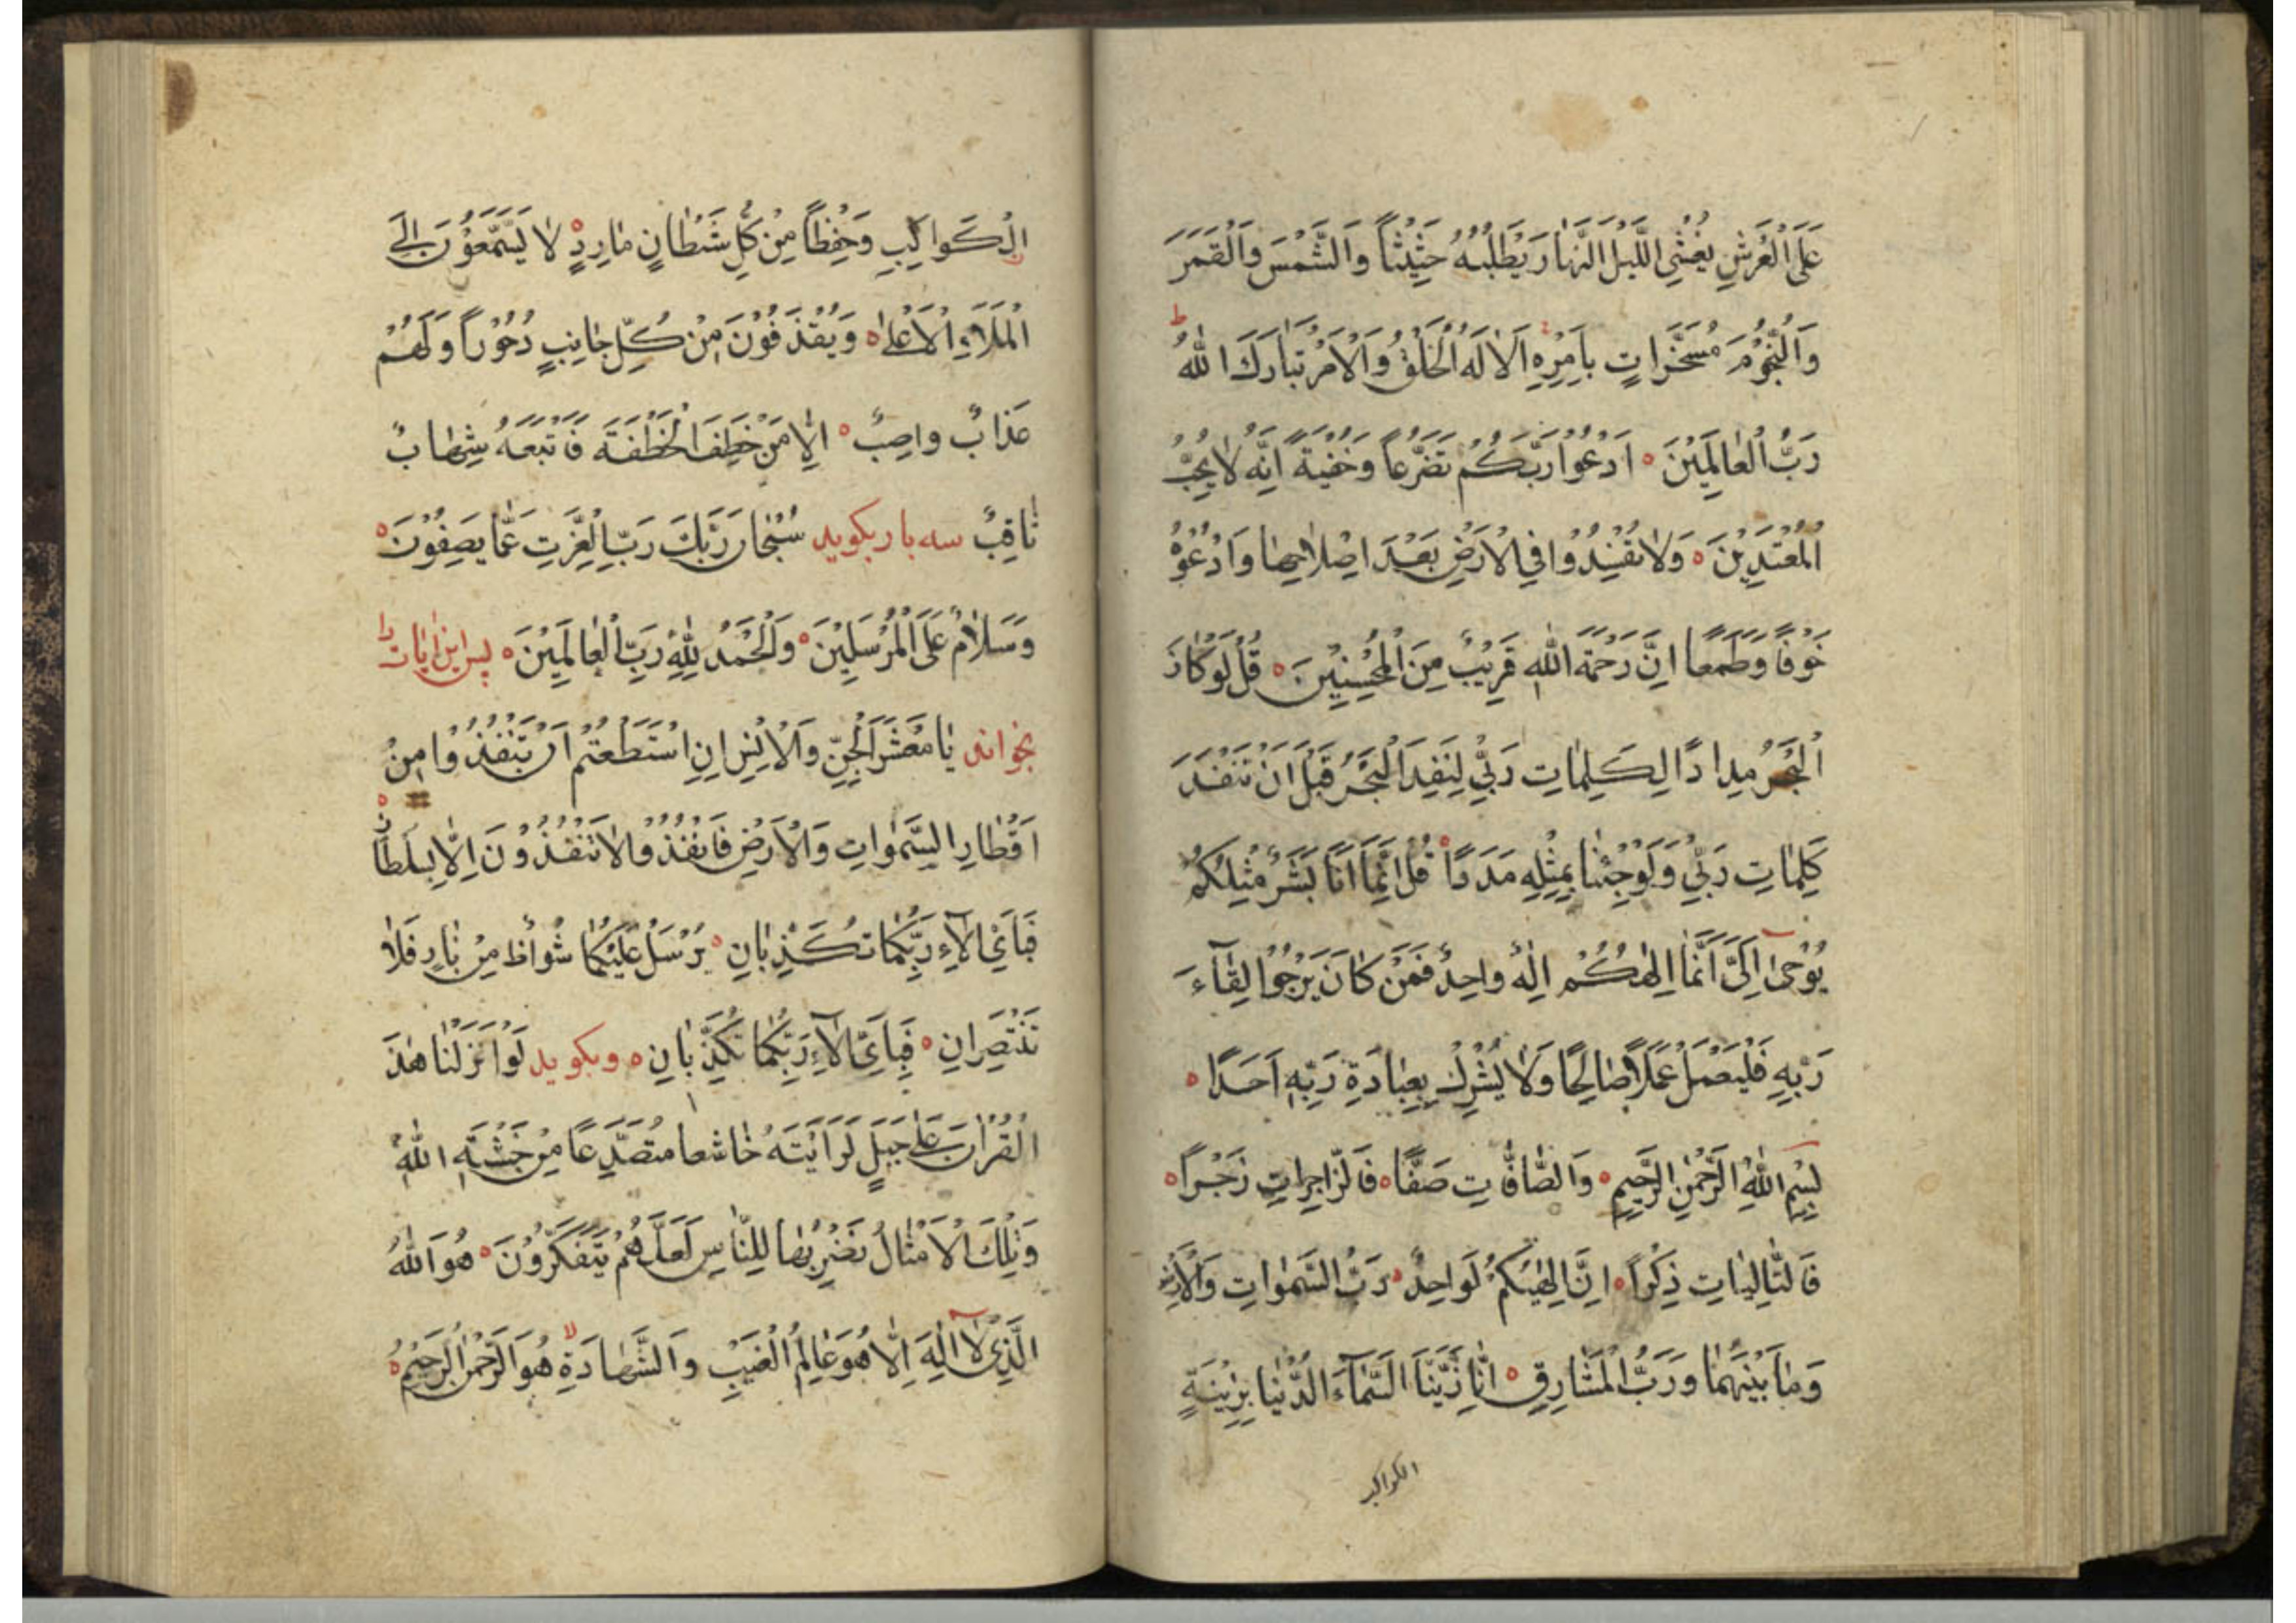 عَلَى الْعَرْشِ يُغْشِى اللَّيْلَ النَّهٰارَ يَطْلُبُهُ حَثِيْثاً وَالشَّمْسَ وَالْقَمَرَ
وَالنُّجُوْمَ مُسَخَّرٰاتٍ بِاَمْرِهِ اَلاٰ لَهُ الْخَلْقُ وَالْاَمْرُ تَبٰارَكَ اللّٰهُ
رَبُّ الْعٰالَمِيْنَ ه اَدْعُوْا رَبَّكُمْ تَضَرُّعاً وَخُفْيَةً اِنَّهُ لاٰ يُحِبُّ
الْمُعْتَدِيْنَ ه وَلاٰ تُفْسِدُوْا فِي الْاَرْضِ بَعْدَ اِصْلاٰحِهٰا وَادْعُوْهُ
خَوْفًا وَطَمَعًا اِنَّ رَحْمَةَ اللّٰهِ قَرِيْبٌ مِنَ الْمُحْسِنِيْنَ ه قُلْ لَوْ كَانَ
الْبَحْرُ مِدٰادًا لِكَلِمٰاتِ رَبِّيْ لَنَفِدَ الْبَحْرُ قَبْلَ اَنْ تَنْفَدَ
كَلِمٰاتِ رَبِّيْ وَلَوْ جِئْنٰا بِمِثْلِهِ مَدَدًا ه قُلْ اِنَّمَا اَنَا بَشَرٌ مِثْلُكُمْ
يُوْحٰى اِلَيَّ اَنَّمٰا اِلٰهُكُمْ اِلٰهٌ وٰاحِدٌ فَمَنْ كَانَ يَرْجُوْا لِقٰٓاءَ
رَبِّهِ فَلْيَعْمَلْ عَمَلًا صٰالِحًا وَلاٰ يُشْرِكْ بِعِبٰادَةِ رَبِّهِ اَحَدًا ه
بِسْمِ اللّٰهِ الرَّحْمٰنِ الرَّحِيْمِ ه وَالصّٰافّٰاتِ صَفًّا ه فَالزّٰاجِرٰاتِ زَجْراً ه
فَالتّٰالِيٰاتِ ذِكْراً ه اِنَّ اِلٰهَكُمْ لَوٰاحِدٌ ه رَبُّ السَّمٰوٰاتِ وَالْاَرْضِ
وَمٰا بَيْنَهُمٰا وَرَبُّ الْمَشٰارِقِ ه اِنّٰا زَيَّنَّا السَّمٰٓاءَ الدُّنْيٰا بِزِيْنَةٍ
الكواكب
الْكَوٰاكِبِ وَحِفْظاً مِنْ كُلِّ شَيْطٰانٍ مٰارِدٍ ه لاٰ يَسَّمَّعُوْنَ اِلَى
الْمَلَاءِ الْاَعْلىٰ ه وَيُقْذَفُوْنَ مِنْ كُلِّ جٰانِبٍ دُحُوْراً وَلَهُمْ
عَذٰابٌ وٰاصِبٌ ه اِلّاٰ مَنْ خَطِفَ الْخَطْفَةَ فَاَتْبَعَهُ شِهٰابٌ
ثٰاقِبٌ سه بار بكويد سُبْحٰانَ رَبِّكَ رَبِّ الْعِزَّتِ عَمّٰا يَصِفُوْنَ ه
وَسَلاٰمٌ عَلَى الْمُرْسَلِيْنَ ه وَالْحَمْدُ لِلّٰهِ رَبِّ الْعٰالَمِيْنَ ه پس اين اٰيات را
بخواند يٰا مَعْشَرَ الْجِنِّ وَالْاِنْسِ اِنِ اسْتَطَعْتُمْ اَنْ تَنْفُذُوْا مِنْ
اَقْطٰارِ السَّمٰوٰاتِ وَالْاَرْضِ فَانْفُذُوْا لاٰ تَنْفُذُوْنَ اِلّاٰ بِسُلْطٰانٍ ه
فَبِاَيِّ اٰلٓاءِ رَبِّكُمٰا تُكَذِّبٰانِ ه يُرْسَلُ عَلَيْكُمٰا شُوٰاظٌ مِنْ نٰارٍ فَلاٰ
تَنْتَصِرٰانِ ه فَبِاَيِّ اٰلٓاءِ رَبِّكُمٰا تُكَذِّبٰانِ ه وبكويد لَوْ اَنْزَلْنٰا هٰذَ
الْقُرْاٰنَ عَلىٰ جَبَلٍ لَرَاَيْتَهُ خٰاشعا مُتَصَدِّعًا مِنْ خَشْيَةِ اللّٰهِ
وَتِلْكَ الْاَمْثٰالُ نَضْرِبُهٰا لِلنّٰاسِ لَعَلَّهُمْ يَتَفَكَّرُوْنَ ه هُوَ اللّٰهُ
الَّذِيْ لآٰ اِلٰهَ اِلّٰا هُوَ عٰالِمُ الْغَيْبِ وَالشَّهٰادَةِ هُوَ الرَّحْمٰنُ الرَّحِيْمُ ه